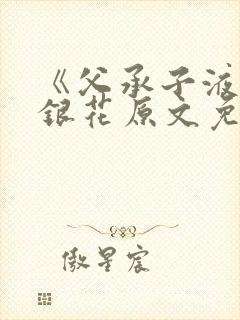 《父承子液
银花原文免
傲星宸